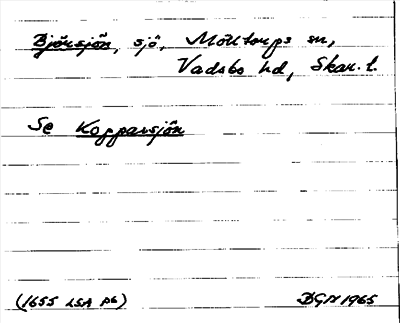 Björsjön, sjö, Mölltorps sn,
Vadsbo hd, Skar. l.
Se Kopparsjön
(1655 LSA P6)
BGN 1965